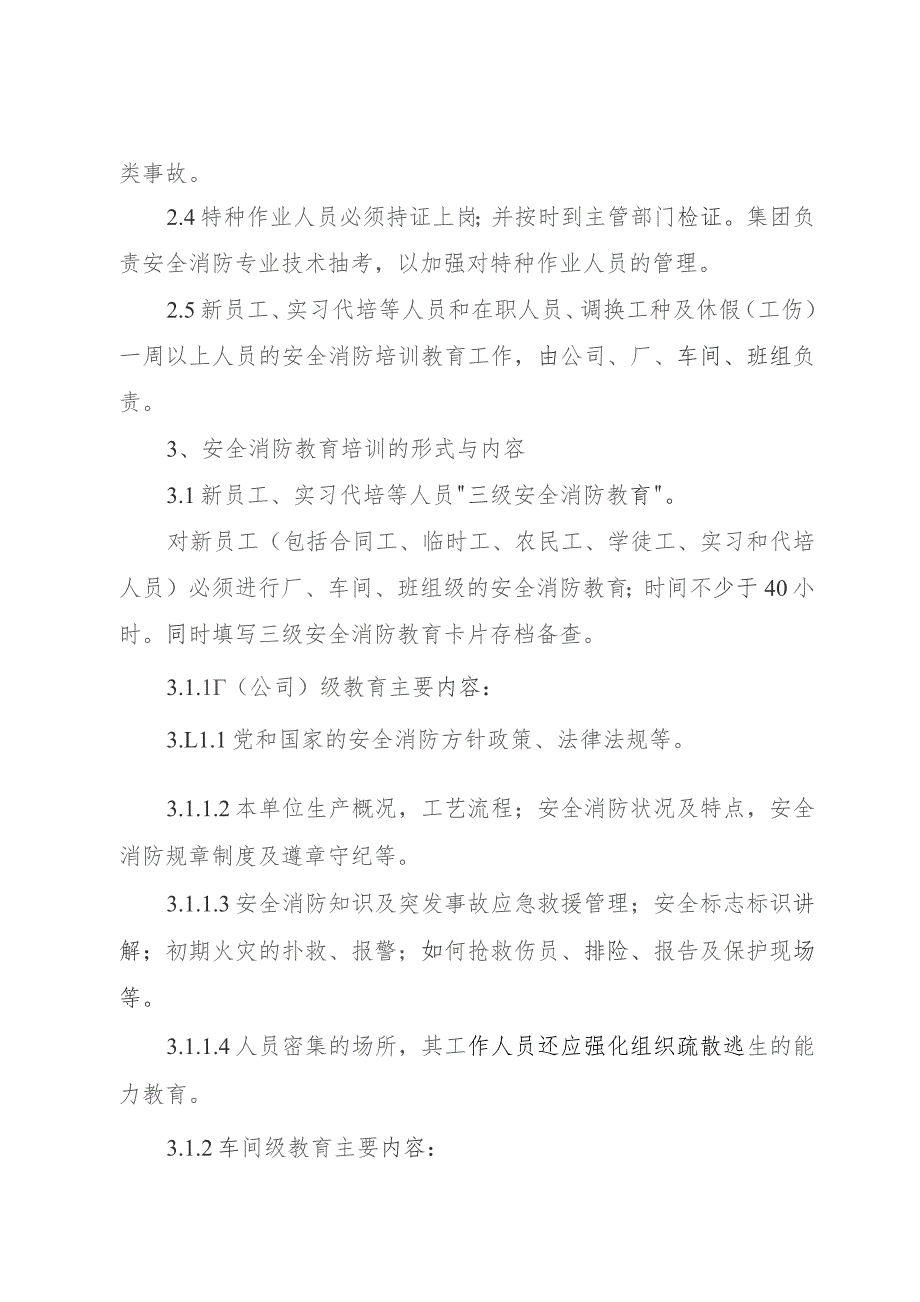 类事故。
2.4 特种作业人员必须持证上岗；并按时到主管部门检证。集团负
责安全消防专业技术抽考，以加强对特种作业人员的管理。
2.5 新员工、实习代培等人员和在职人员、调换工种及休假（工伤）
一周以上人员的安全消防培训教育工作，由公司、厂、车间、班组负
责。
3、安全消防教育培训的形式与内容
3.1 新员工、实习代培等人员"三级安全消防教育"。
对新员工（包括合同工、临时工、农民工、学徒工、实习和代培
人员）必须进行厂、车间、班组级的安全消防教育；时间不少于 40 小
时。同时填写三级安全消防教育卡片存档备查。
3.1.1Г（公司）级教育主要内容：
3.L1.1 党和国家的安全消防方针政策、法律法规等。
3.1.1.2 本单位生产概况，工艺流程；安全消防状况及特点，安全
消防规章制度及遵章守纪等。
3.1.1.3 安全消防知识及突发事故应急救援管理；安全标志标识讲
解；初期火灾的扑救、报警；如何抢救伤员、排险、报告及保护现场
等。
3.1.1.4 人员密集的场所，其工作人员还应强化组织疏散逃生的能
力教育。
3.1.2 车间级教育主要内容：